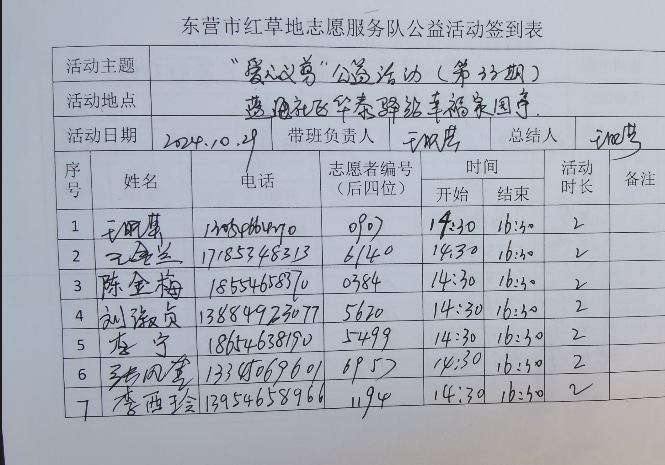 东营市红草地志愿服务队公益活动签到表
活动主题 “爱心义剪”公益活动(第33期)
活动地点 社区华泰驿站幸福家园店
活动日期 2024.10.29 带班负责人 总结人
序号 姓名 电话 志愿者编号(后四位) 时间 开始 结束 活动时长 备注
1 0907 14:30 16:30 2
2 王金兰 17185348313 6140 14:30 16:30 2
3 陈金梅 18554658370 0384 14:30 16:30 2
4 刘淑贞 13884923077 5620 14:30 16:30 2
5 李宁 18654638190 5499 14:30 16:30 2
6 张凤 13345069601 6957 14:30 16:30 2
7 李西玲 13954658966 1194 14:30 16:30 2